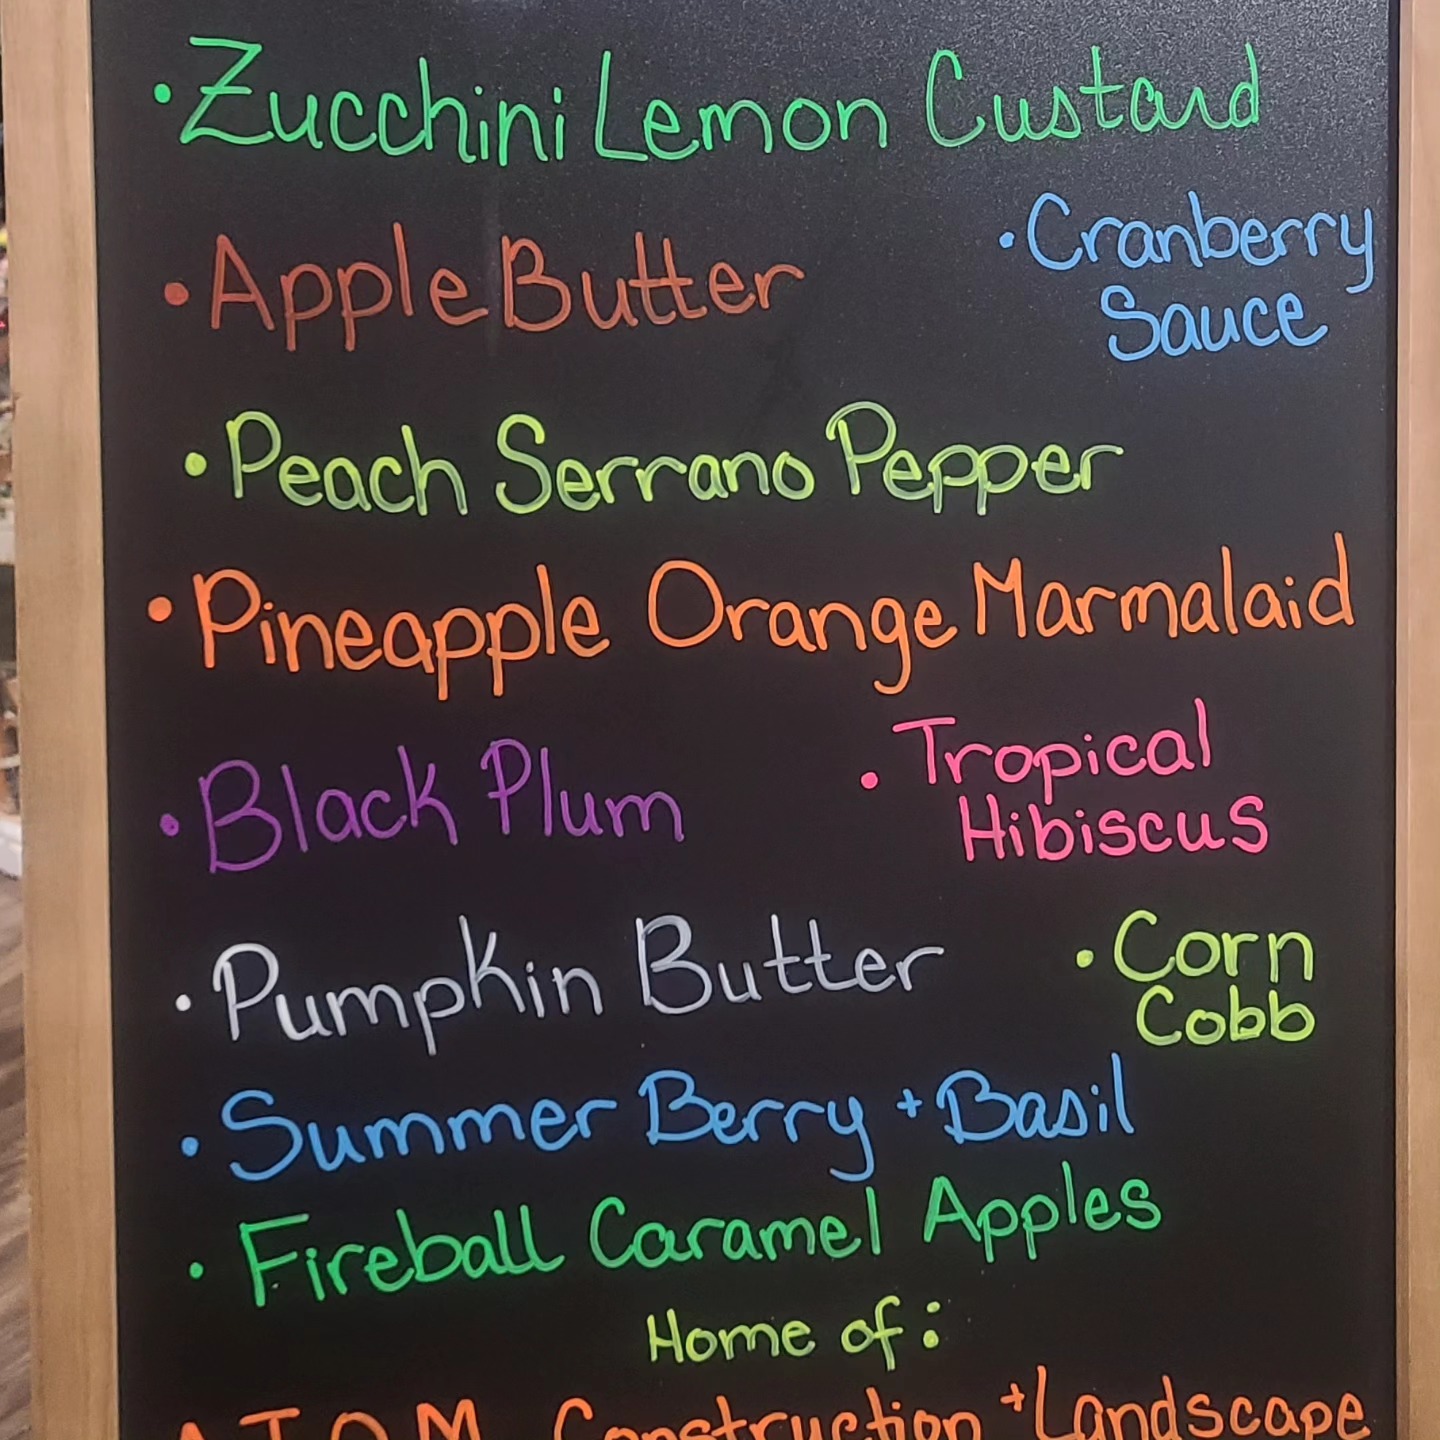 • Zucchini Lemon Custard
• Apple Butter
• Cranberry
Sauce
• Peach Serrano Pepper
• Pineapple Orange Marmalaid
• Black Plum
• Tropical
Hibiscus
• Pumpkin Butter
• Corn
Cobb
• Summer Berry + Basil
• Fireball Caramel Apples
Home of:
A.T.O.M. Construction + Landscape